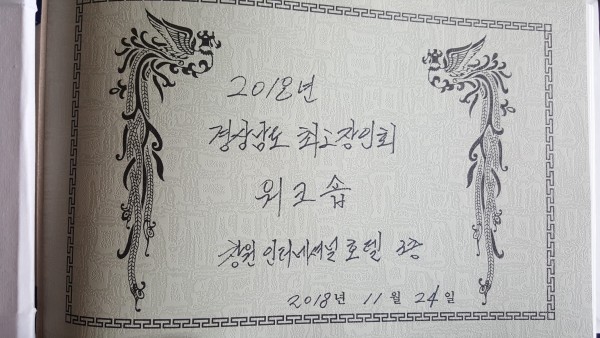 2018년
경상남도 최고장인회
워크숍
창원 인터내셔널 호텔 3층
2018년 11월 24일